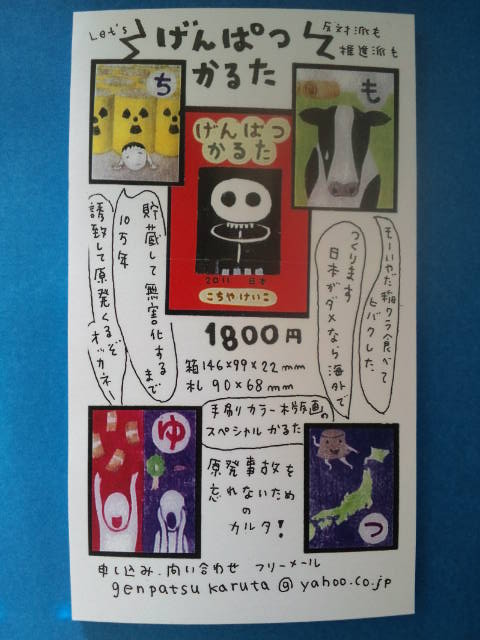 Let's
げんぱつ
かるた
反対派も
推進派も
ち
も
げんぱつ
かるた
2011 日本
こちやけいこ
1800円
箱146×99×22mm
札 90×68mm
もーいやだ稲ワラ食べて
ヒバクした。
つくります
日本がダメなら海外で
貯蔵して無害化するまで
10万年
誘致して原発くるぞ
オッカネー
手刷りカラー木版画の
スペシャルかるた
ゆ
つ
原発事故を
忘れないため
の
カルタ!
申し込み、問い合わせ フリーメール
genpatsu karuta@yahoo.co.jp